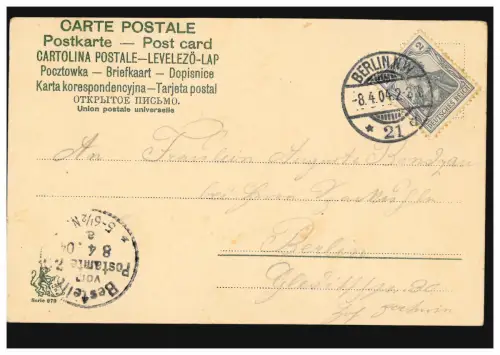 CARTE POSTALE
Postkarte — Post card
CARTOLINA POSTALE—LEVELEZÖ-LAP
Pocztowka — Briefkaart — Dopisnice
Karta korespondencyjna—Tarjeta postal
ОТКРЫТОЕ ПИСЬМО.
Union postale universelle
BERLIN N.W.
-8.4.04.2-3
* 21
2
DEUTSCHES REICH
An Fräulein Auguste
bei Herrn
Berlin
5-6½ N.
8 4 . 04
Bestellt
vom
Postamte 7
Serie 679